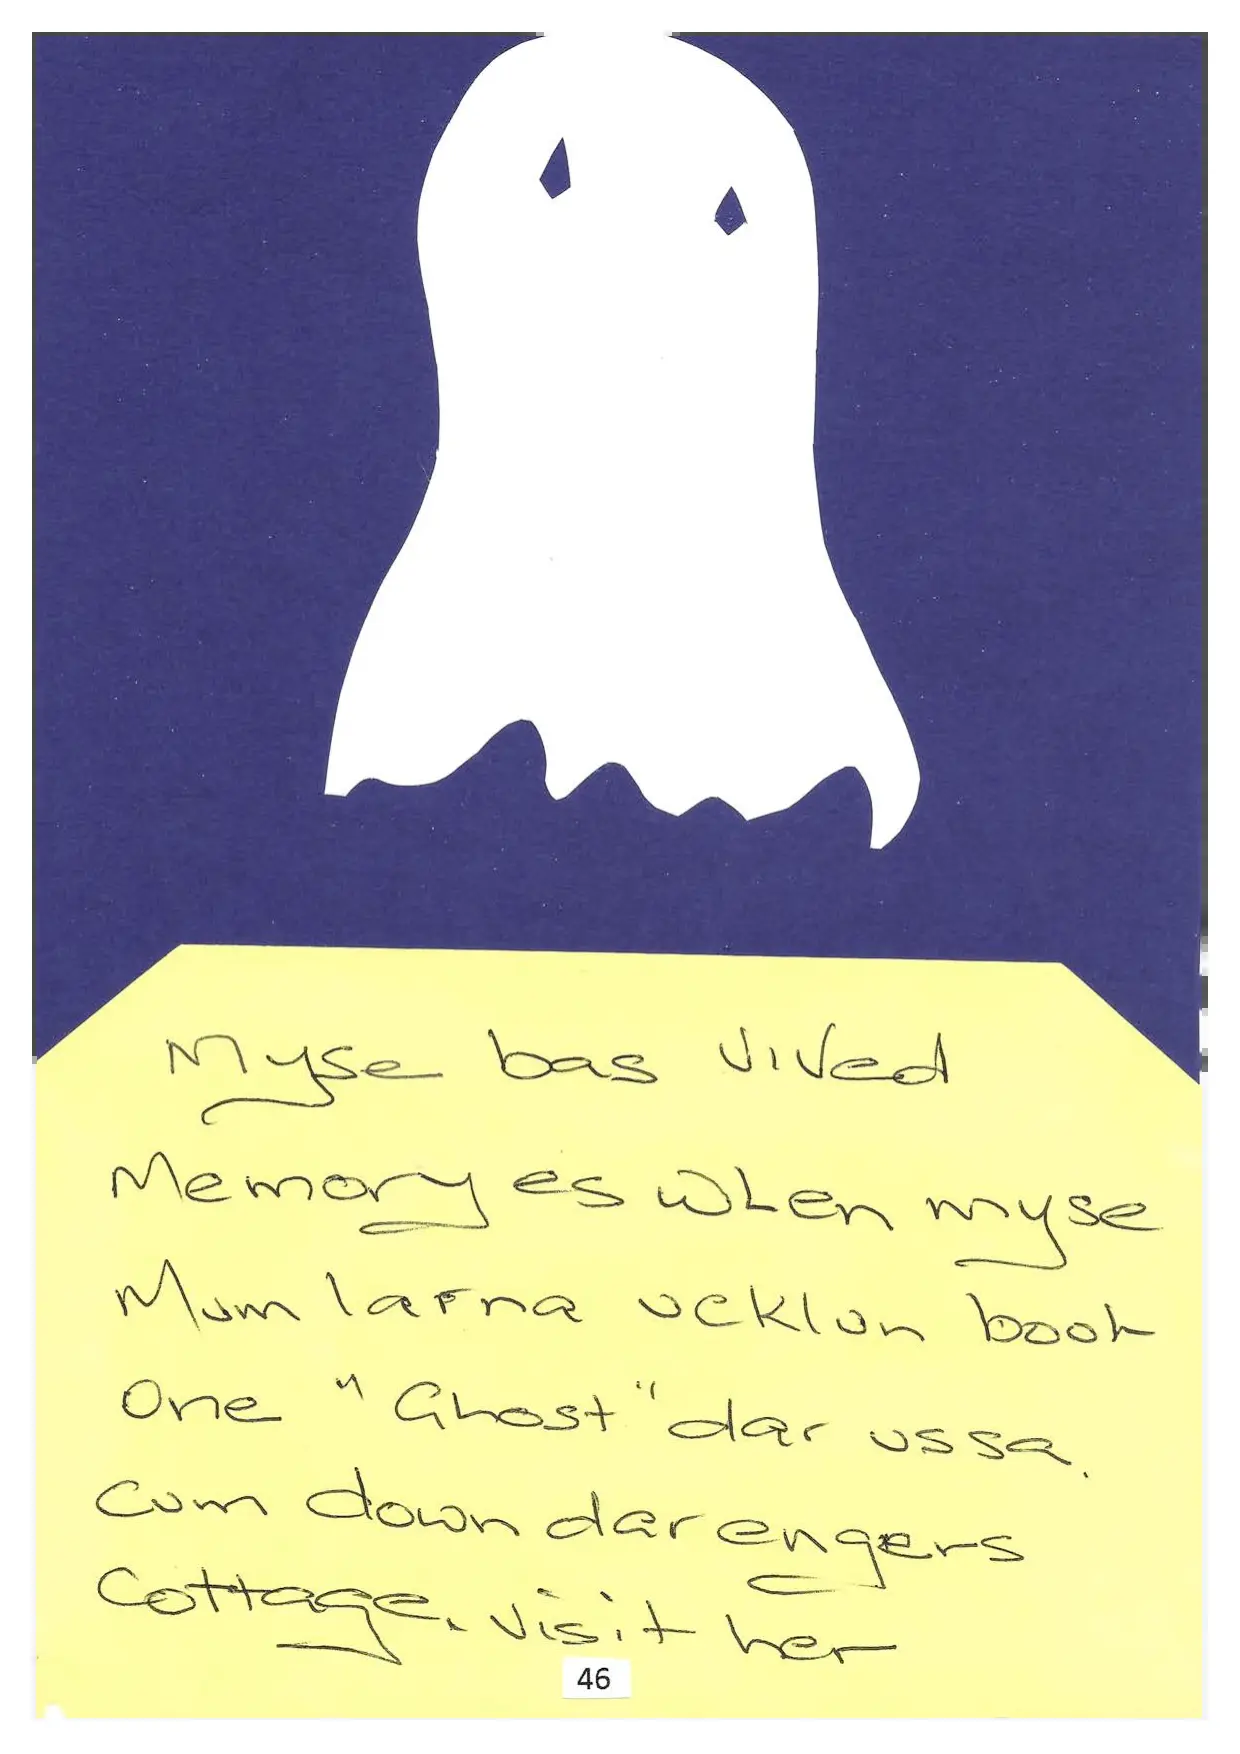 Myse bas vived
Memoryes when myse
Mum larna ucklun boot
one "Ghost" dar ussa.
cum down dar engers
Cottage. visit her
46